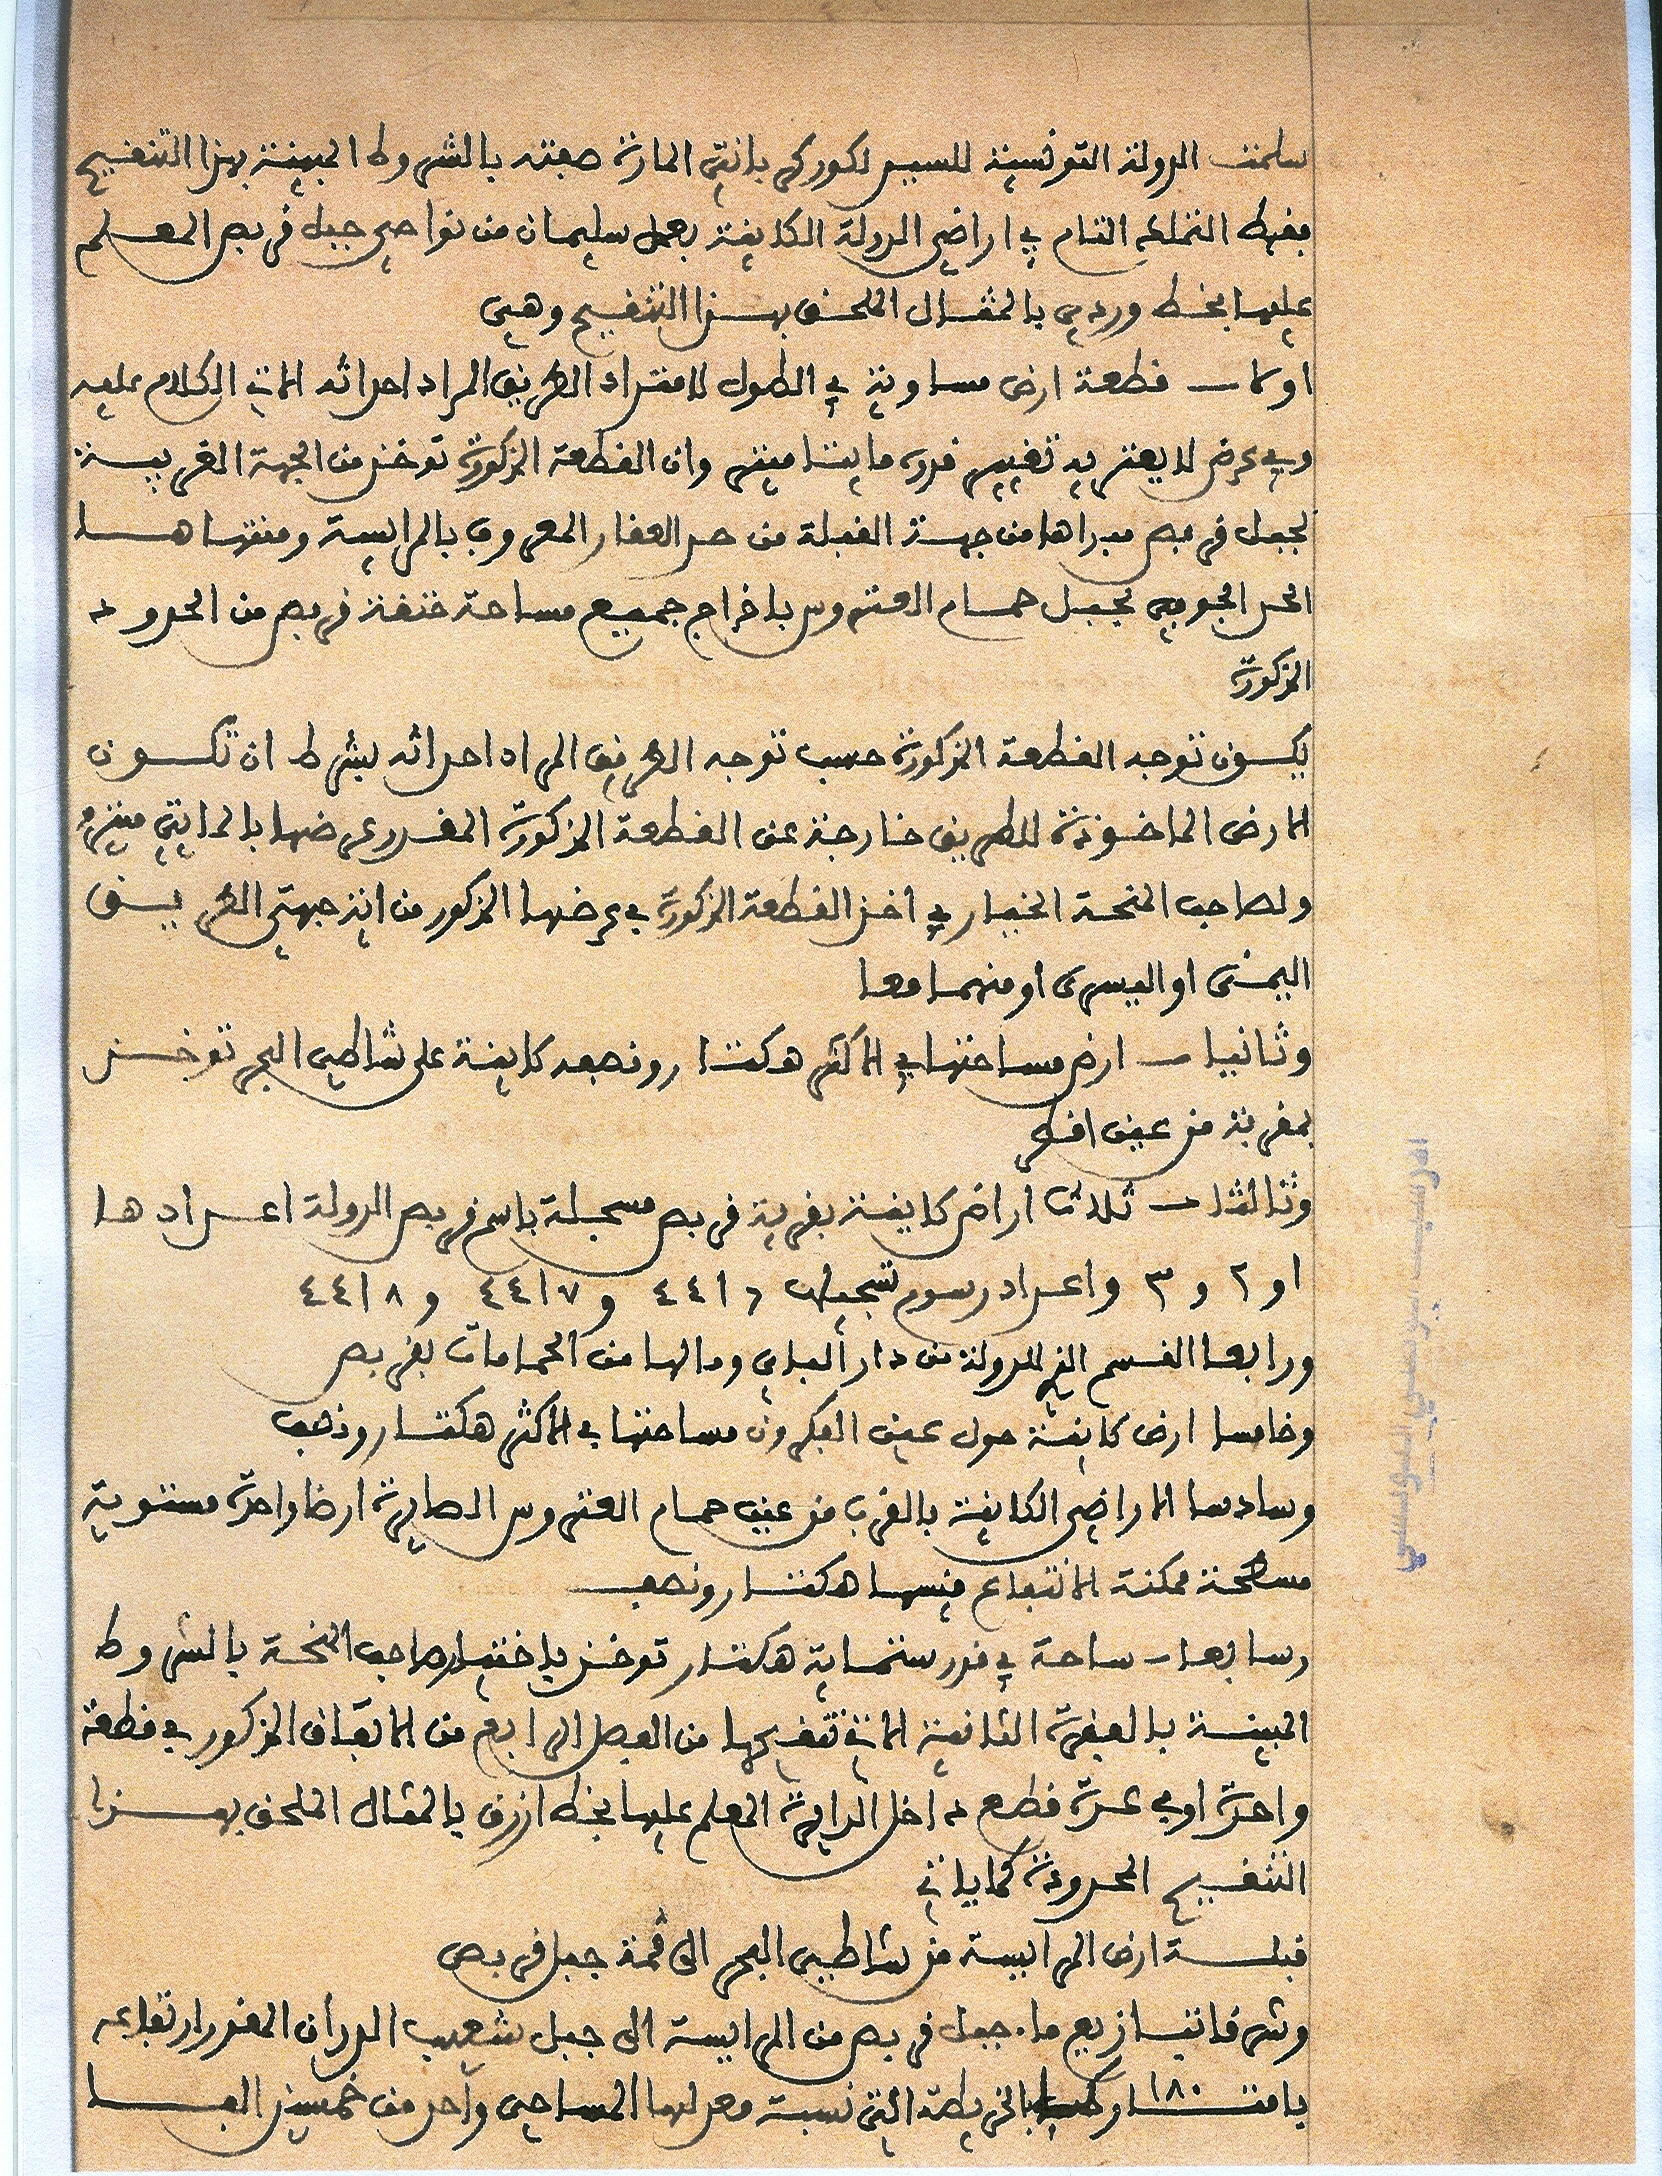 سلمت الدولة التونسية للسيد لكوركي بانتي المارة صفته بالشروط المبينة بهذا التنقيح
فقط التملك التام في اراضي الدولة الكاينة بعمل سليمان من نواحي جبل قربص المعلم
عليها بخط وردي بالمثال الملحق بهذا التنقيح وهي
اولا قطعة ارض مساوية في الطول لامتداد الطريق المراد احداثه الاتي الكلام عليه
وفي عرض لا يعتريه تغيير قدره مايتا ميتر وان القطعة المذكورة توخذ من الجهة الغربية
لجبل قربص مبداها من جهة القبلة من حد العقار المعروف بالمرايسة ومنتهاها
الحد الجوفي لجبل حمام العتروس باخراج جميع مساحة خنقة قربص من الحدود
المذكورة
يكون توجه القطعة المذكورة حسب توجه الطريق المراد احداثه بشرط ان تكون
الارض الماخوذة للطريق خارجة عن القطعة المذكورة المقدر عرضها بالمايتي ميترو
ولصاحب المنحة الخيار في اخذ القطعة المذكورة في عرضها المذكور من اية جهتي الطريق
اليمنى او اليسرى او منهما معا
وثانيا ارض مساحتها في الاكثر هكتار ونصف كاينة على شاطي البحر توخذ
بمقربة من عين اقطر
وثالثا ثلاث اراض كاينة بقرية قربص مسجلة باسم قربص الدولة اعدادها
١ و ٢ و ٣ واعداد رسوم تسجيلها ٤٤١٦ و ٤٤١٧ و ٤٤١٨
ورابعا القسم الذي للدولة من دار الباي وما لها من الحمامات بقربص
وخامسا ارض كاينة حول عين الفكرون مساحتها في الاكثر هكتار ونصف
وسادسا الاراضي الكاينة بالقرب من عين حمام العتروس الصايرة ارضا واحدة مستوية
مسطحة ممكنة الانتفاع فيسها هكتار ونصف
وسابعا ساحة في قدر ستماية هكتار توخذ باختيار صاحب المنحة بالشروط
المبينة بالفقرة الثانية الاتي تنقيحها من الفصل الرابع من الاتفاق المذكور في قطعة
واحدة او في عدة قطع داخل الدايرة المعلم عليها بخط ازرق بالمثال الملحق بهذا
التنقيح المحدودة كما ياتي
قبلة ارض المرايسة من شاطي البحر الى قمة جبل قربص
وشرقا تنازيع ماء جبل قربص من المرايسة الى جبل شعيب الدران المقدر ارتفاعه
بامتار ١٨٠ بالخريطة التي نسبة معدلها المساحي واحد من خمسين الفا